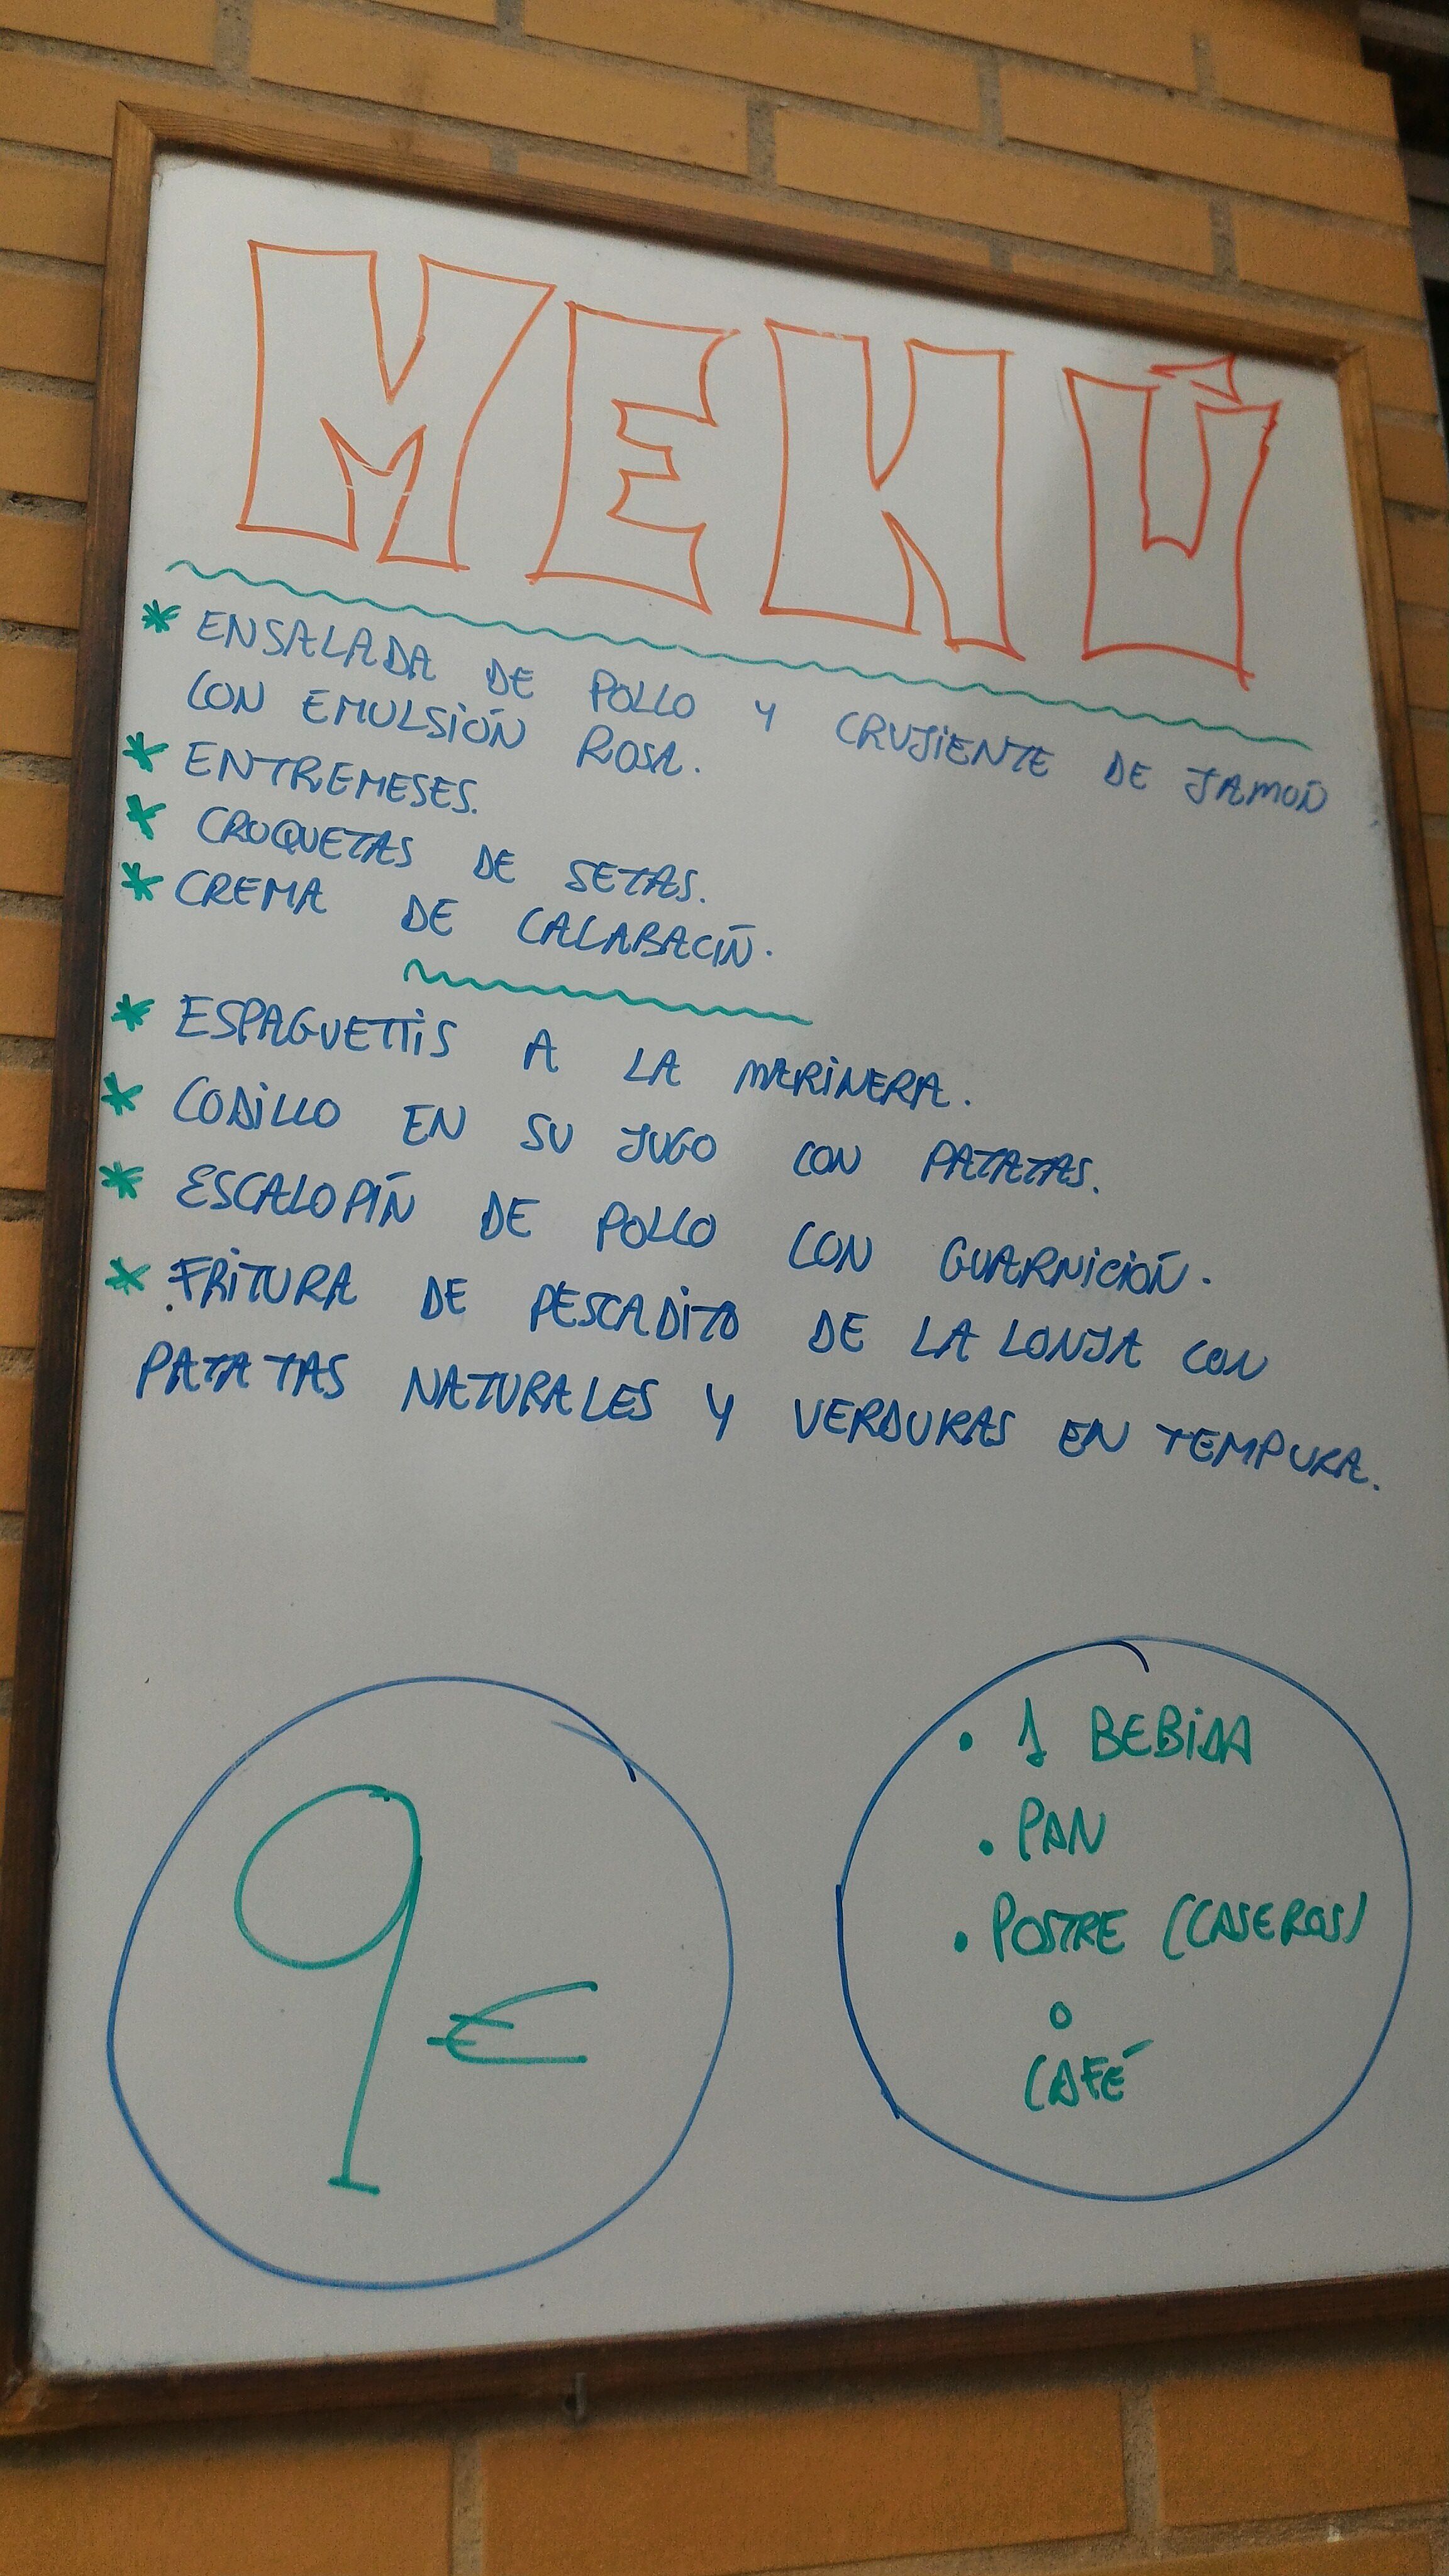 MENÚ
* ENSALADA DE POLLO Y CRUJIENTE DE JAMÓN
CON EMULSIÓN ROSA.
* ENTREMESES.
* CROQUETAS DE SETAS.
* CREMA DE CALABACÍN.
* ESPAGUETTIS A LA MARINERA.
* CODILLO EN SU JUGO CON PATATAS.
* ESCALOPÍN DE POLLO CON GUARNICIÓN.
* FRITURA DE PESCADITO DE LA LONJA CON
PATATAS NATURALES Y VERDURAS EN TEMPURA.
9 €
• 1 BEBIDA
• PAN
• POSTRE (CASEROS)
O
CAFÉ